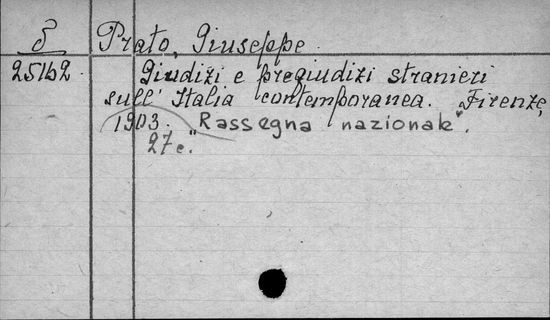 Prato, Giuseppe.
25162 Giudizi e pregiudizi stranieri
sull' Italia contemporanea. Firenze,
1903. "Rassegna nazionale".
27 c.